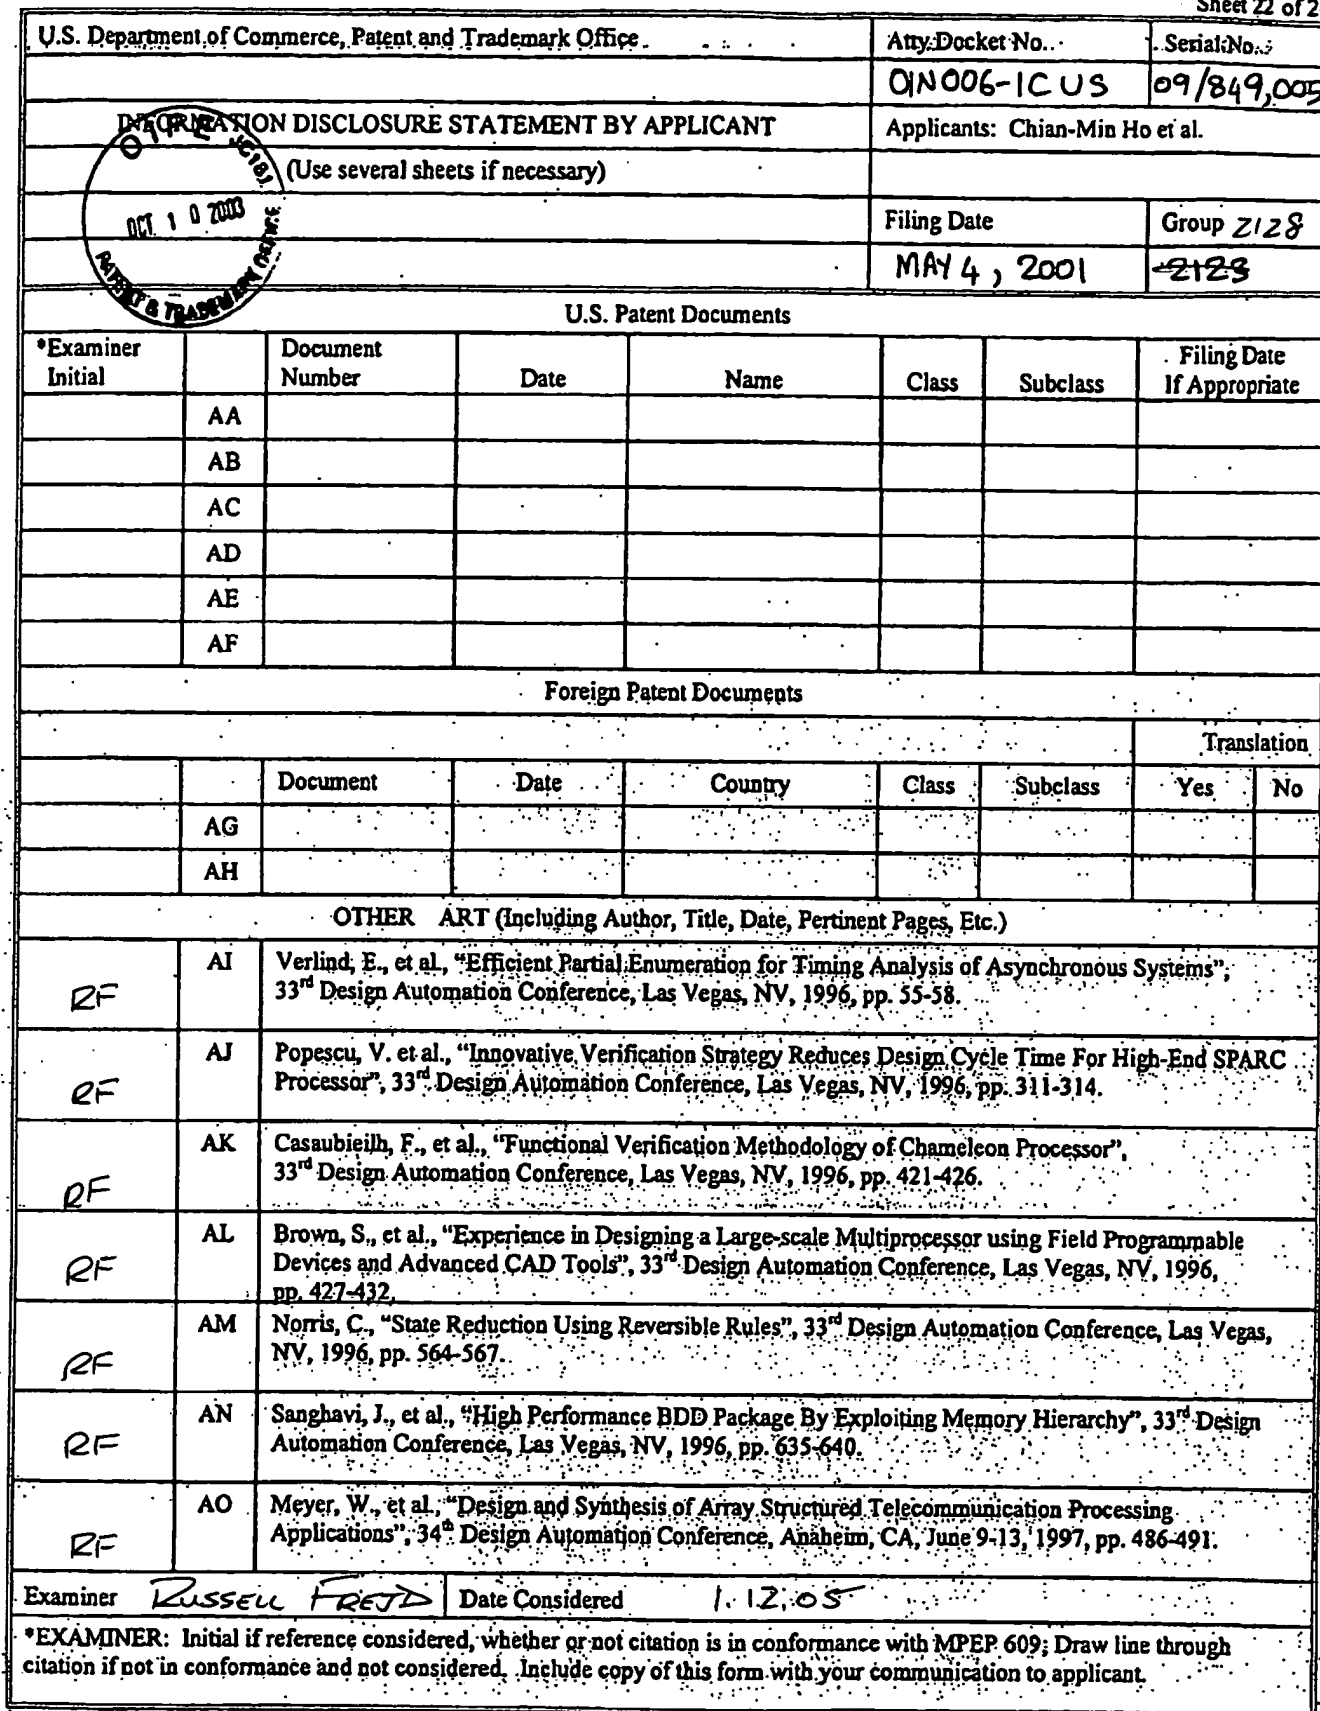 Sheet 22 of 2
U.S. Department of Commerce, Patent and Trademark Office
Atty Docket No.
Serial No.
0IN006-1C US
09/849,005
INFORMATION DISCLOSURE STATEMENT BY APPLICANT
Applicants: Chian-Min Ho et al.
(Use several sheets if necessary)
O I P E JC181
OCT 1 0 2003
PATENT & TRADEMARK OFFICE
Filing Date
Group 2128
MAY 4, 2001
2123
U.S. Patent Documents
*Examiner Initial
Document Number
Date
Name
Class
Subclass
Filing Date If Appropriate
AA
AB
AC
AD
AE
AF
Foreign Patent Documents
Translation
Document
Date
Country
Class
Subclass
Yes
No
AG
AH
OTHER ART (Including Author, Title, Date, Pertinent Pages, Etc.)
RF
AI
Verlind, E., et al., "Efficient Partial Enumeration for Timing Analysis of Asynchronous Systems",
33rd Design Automation Conference, Las Vegas, NV, 1996, pp. 55-58.
RF
AJ
Popescu, V. et al., "Innovative Verification Strategy Reduces Design Cycle Time For High-End SPARC
Processor", 33rd Design Automation Conference, Las Vegas, NV, 1996, pp. 311-314.
RF
AK
Casaubieilh, F., et al., "Functional Verification Methodology of Chameleon Processor",
33rd Design Automation Conference, Las Vegas, NV, 1996, pp. 421-426.
RF
AL
Brown, S., et al., "Experience in Designing a Large-scale Multiprocessor using Field Programmable
Devices and Advanced CAD Tools", 33rd Design Automation Conference, Las Vegas, NV, 1996,
pp. 427-432.
RF
AM
Norris, C., "State Reduction Using Reversible Rules", 33rd Design Automation Conference, Las Vegas,
NV, 1996, pp. 564-567.
RF
AN
Sanghavi, J., et al., "High Performance BDD Package By Exploiting Memory Hierarchy", 33rd Design
Automation Conference, Las Vegas, NV, 1996, pp. 635-640.
RF
AO
Meyer, W., et al., "Design and Synthesis of Array Structured Telecommunication Processing
Applications", 34th Design Automation Conference, Anaheim, CA, June 9-13, 1997, pp. 486-491.
Examiner RUSSELL FREJD
Date Considered 1.12.05
*EXAMINER: Initial if reference considered, whether or not citation is in conformance with MPEP 609; Draw line through
citation if not in conformance and not considered. Include copy of this form with your communication to applicant.